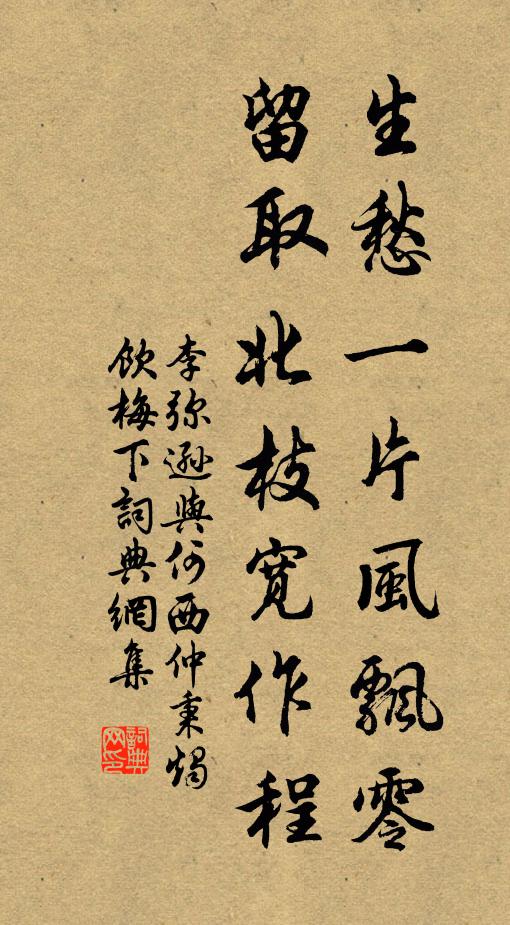 生愁一片風飄零
留取北枝寬作程
李弥遜與何西仲秉燭
飲梅下詞典網集
詞典网印